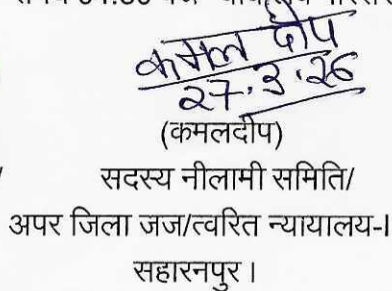 कमल दीप
27.3.26
(कमलदीप)
सदस्य नीलामी समिति/
अपर जिला जज/त्वरित न्यायालय-I
सहारनपुर।